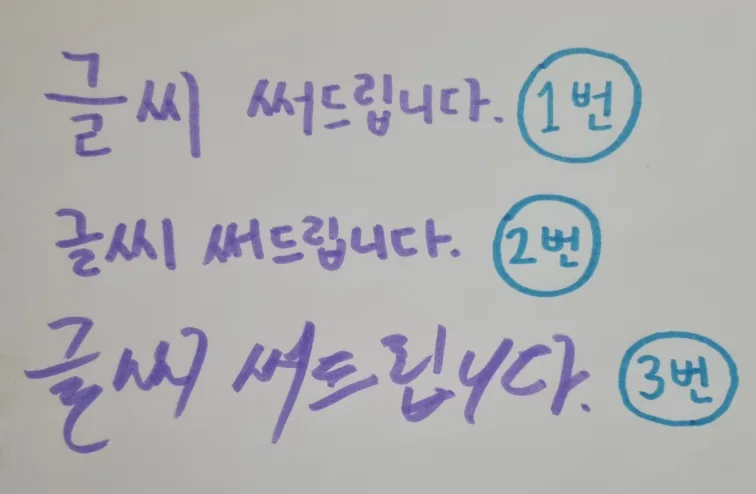 글씨 써드립니다. 1번
글씨 써드립니다. 2번
글씨 써드립니다. 3번